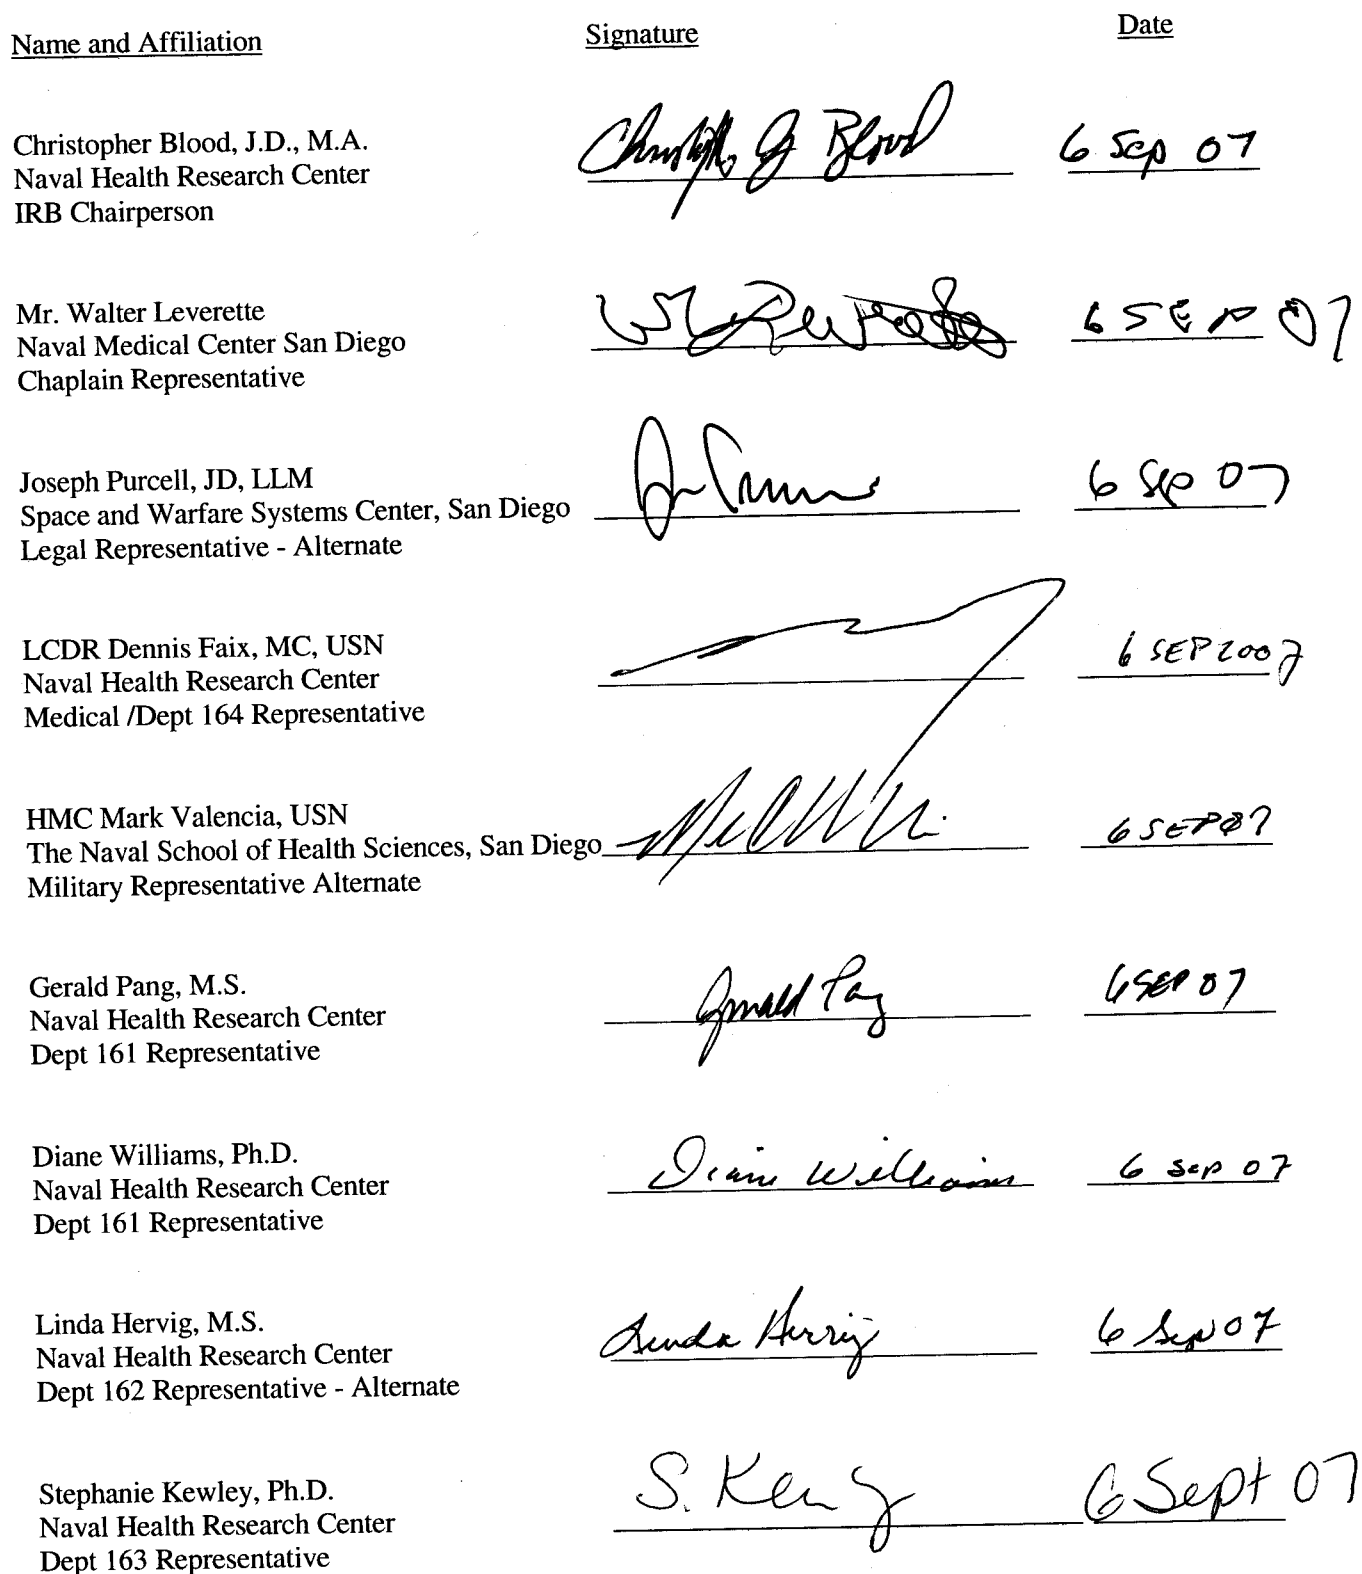 Name and Affiliation Signature Date
Christopher Blood, J.D., M.A.
Naval Health Research Center
IRB Chairperson
Christoph G Blood 6 Sep 07
Mr. Walter Leverette
Naval Medical Center San Diego
Chaplain Representative
6 SEP 07
Joseph Purcell, JD, LLM
Space and Warfare Systems Center, San Diego
Legal Representative - Alternate
6 Sep 07
LCDR Dennis Faix, MC, USN
Naval Health Research Center
Medical /Dept 164 Representative
6 SEP 2007
HMC Mark Valencia, USN
The Naval School of Health Sciences, San Diego
Military Representative Alternate
6 SEP 07
Gerald Pang, M.S.
Naval Health Research Center
Dept 161 Representative
Gerald Pang 6 SEP 07
Diane Williams, Ph.D.
Naval Health Research Center
Dept 161 Representative
Diane Williams 6 sep 07
Linda Hervig, M.S.
Naval Health Research Center
Dept 162 Representative - Alternate
Linda Hervig 6 Sep 07
Stephanie Kewley, Ph.D.
Naval Health Research Center
Dept 163 Representative
S. Kewley 6 Sept 07